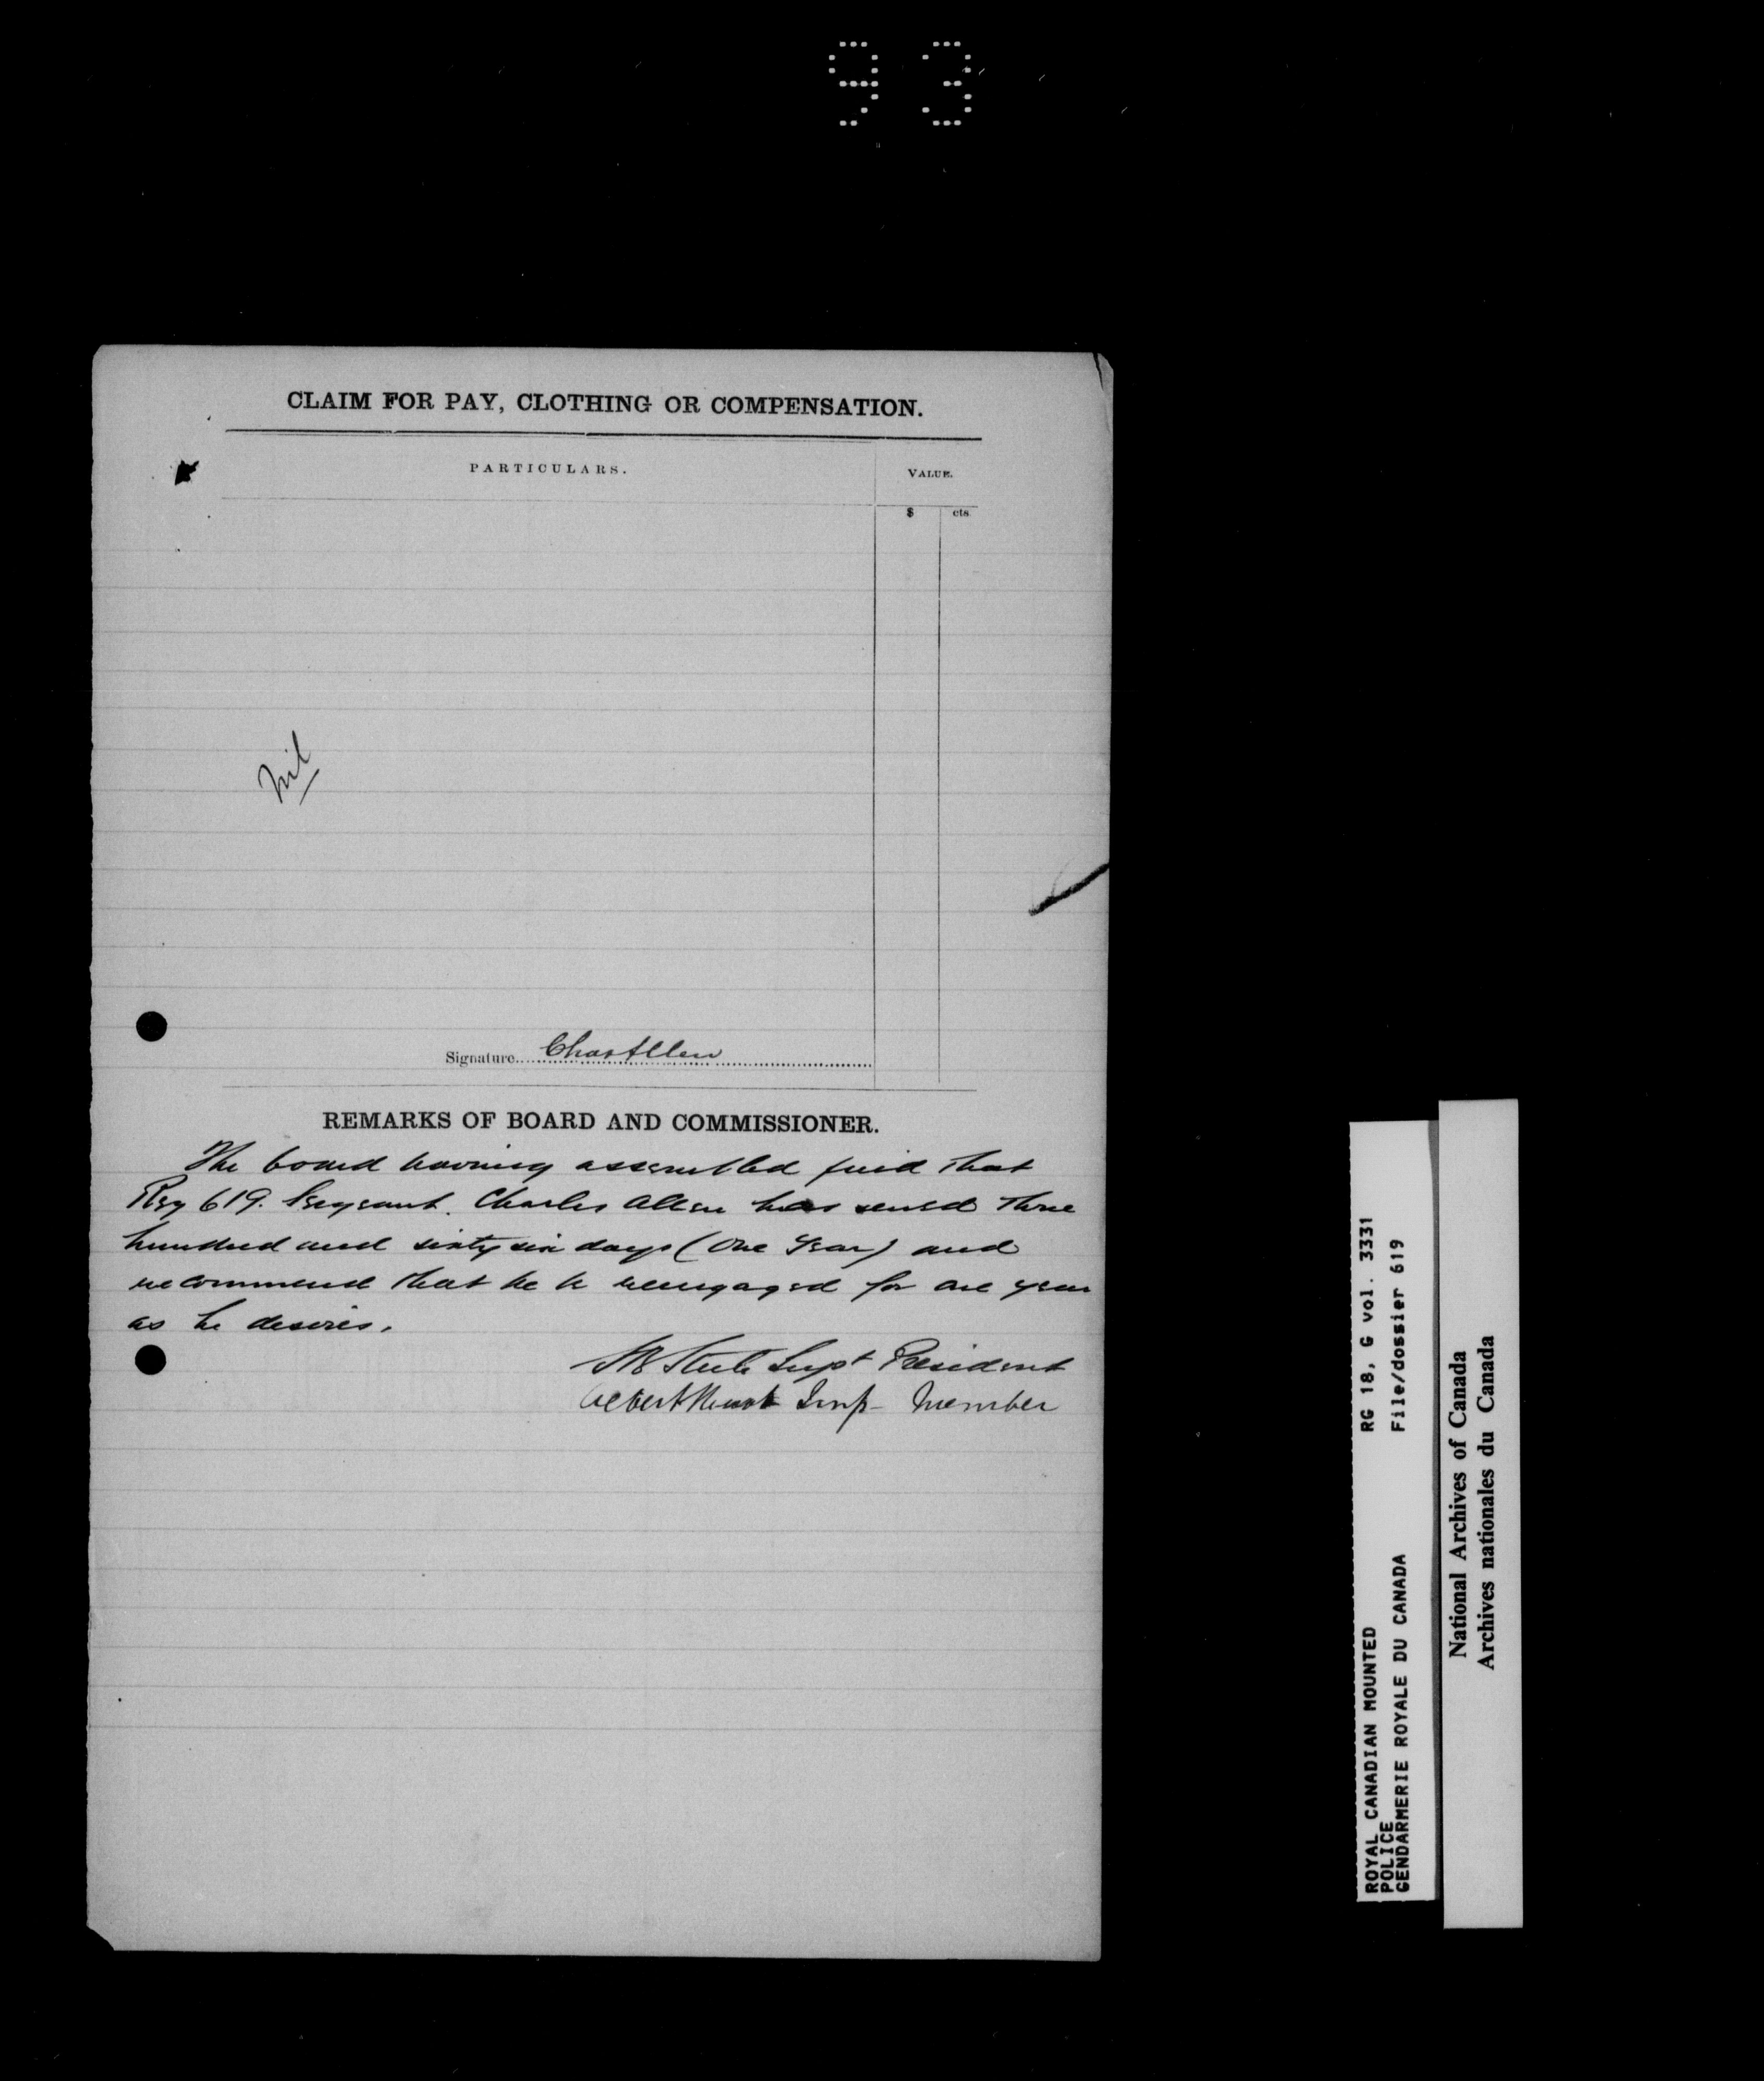 93
CLAIM FOR PAY, CLOTHING OR COMPENSATION.
PARTICULARS.
VALUE.
$ cts.
Nil
Signature Chas Allen
REMARKS OF BOARD AND COMMISSIONER.
The board having assembled find that
Reg 619. Sergeant. Charles Allen has served three
hundred and sixty six days (One Year) and
recommend that he be reengaged for one year
as he desires.
Supt President
Albert Insp Member
ROYAL CANADIAN MOUNTED RG 18, G vol. 3331
POLICE
GENDARMERIE ROYALE DU CANADA File/dossier 619
National Archives of Canada
Archives nationales du Canada